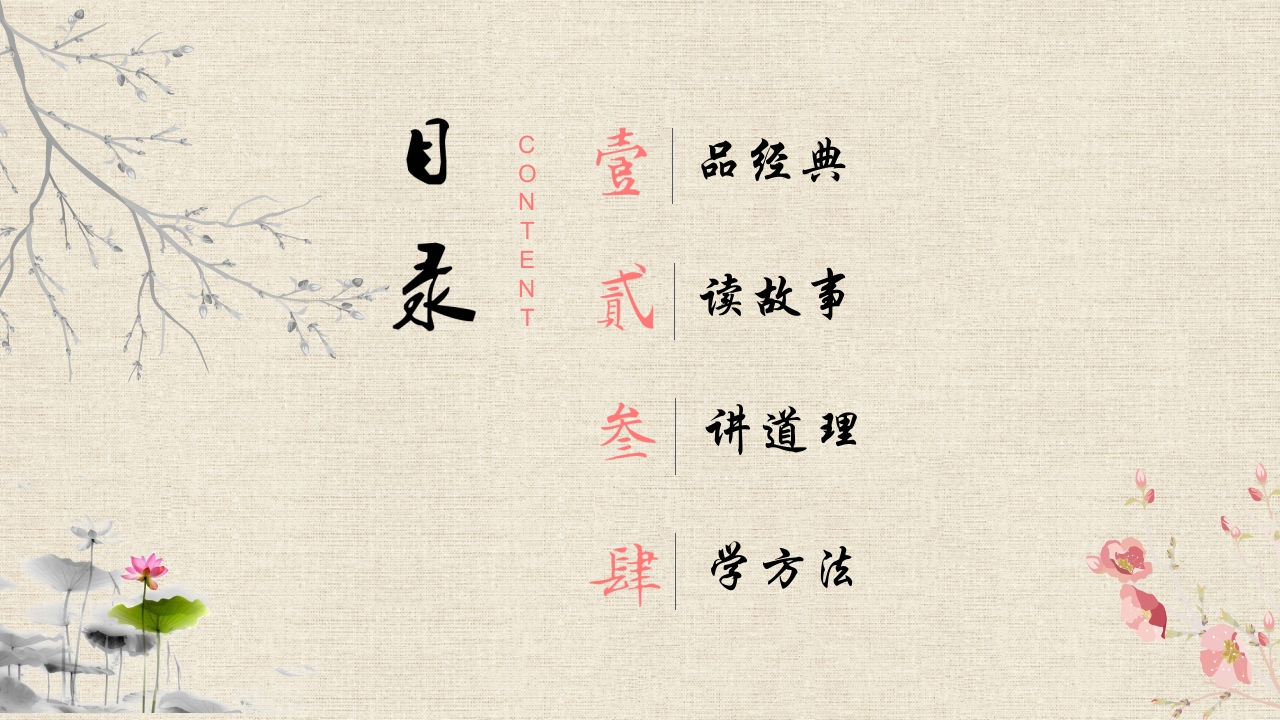 目录
CONTENT
壹 品经典
贰 读故事
叁 讲道理
肆 学方法